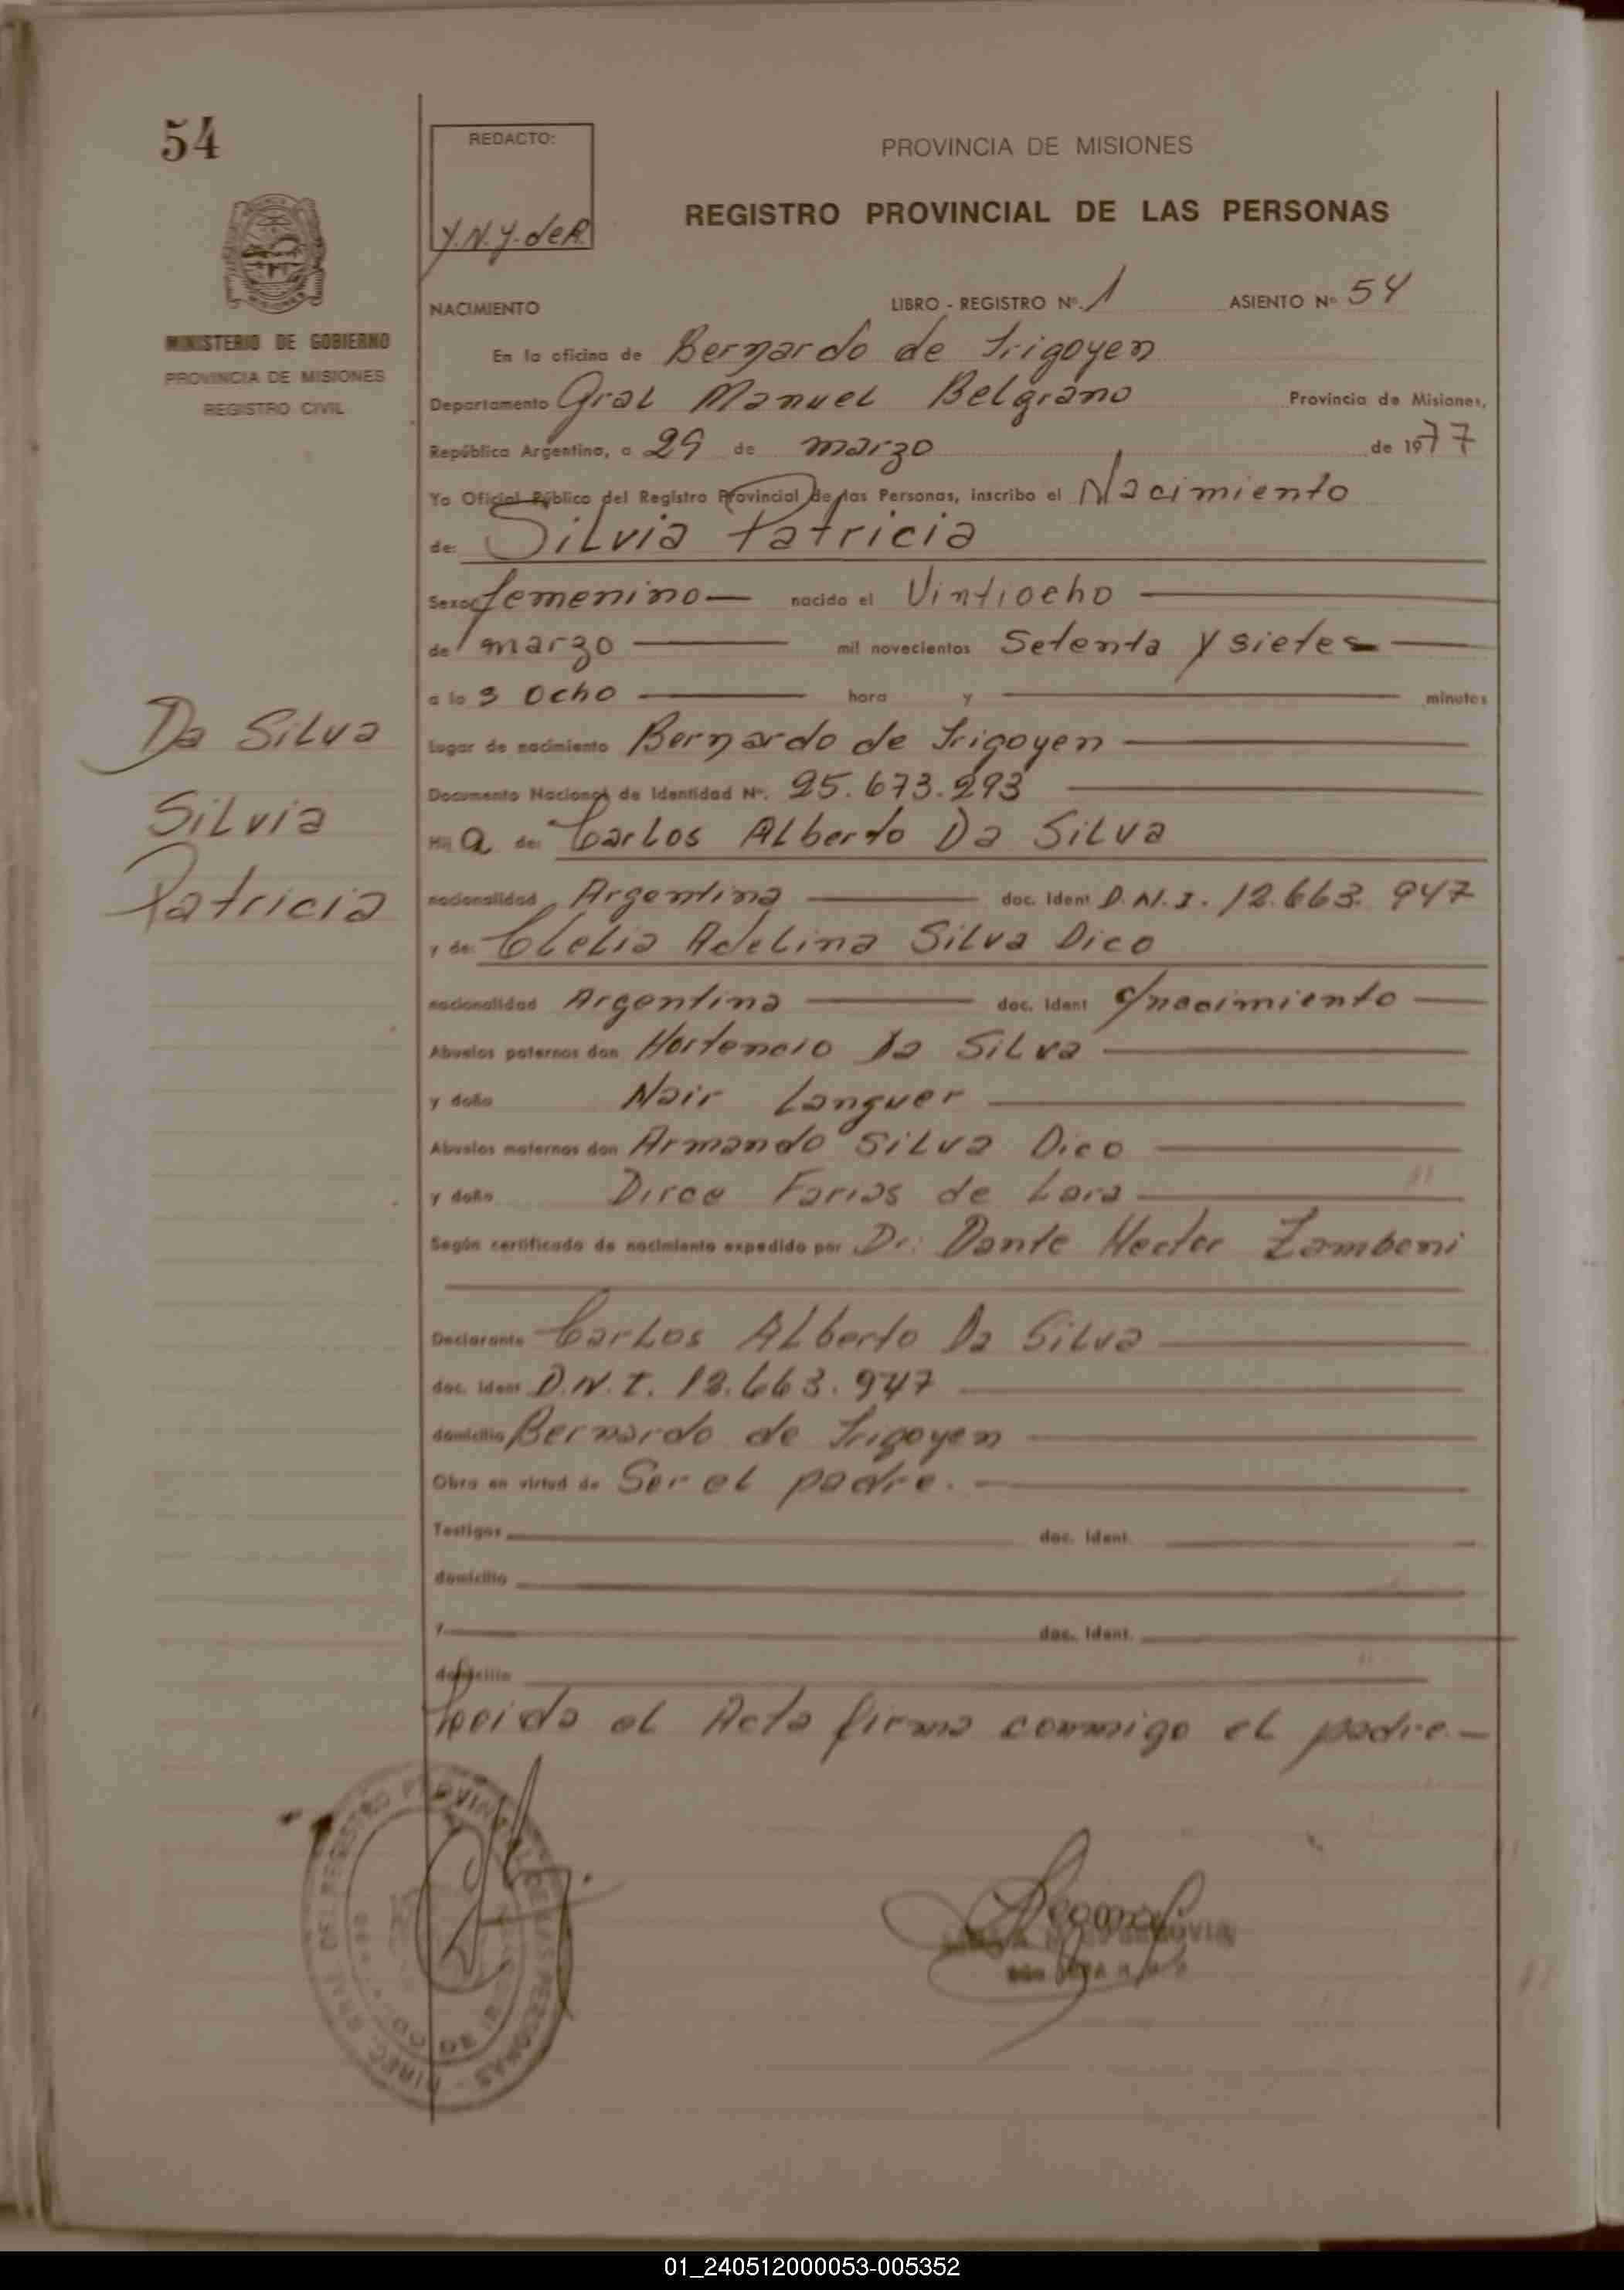 54
REDACTO:
Y.N.Y. de R.
PROVINCIA DE MISIONES
REGISTRO PROVINCIAL DE LAS PERSONAS
MINISTERIO DE GOBIERNO
PROVINCIA DE MISIONES
REGISTRO CIVIL
NACIMIENTO LIBRO - REGISTRO Nº. 1 ASIENTO Nº 54
En la oficina de Bernardo de Irigoyen
Departamento Gral Manuel Belgrano Provincia de Misiones,
República Argentina, a 29 de marzo de 1977
Yo Oficial Público del Registro Provincial de las Personas, inscribo el Nacimiento
de: Silvia Patricia
Sexo femenino nacido el Vintiocho
de marzo mil novecientos Setenta y sietes
a las Ocho hora y minutos
Da Silva
Silvia
Patricia
Lugar de nacimiento Bernardo de Irigoyen
Documento Nacional de Identidad Nº. 25.673.293
Hija de: Carlos Alberto Da Silva
nacionalidad Argentina doc. Ident D.N.I. 12.663.947
y de: Clelia Adelina Silva Dico
nacionalidad Argentina doc. Ident c/nacimiento
Abuelos paternos don Hortencio Da Silva
y doña Nair Languer
Abuelos maternos don Armando Silva Dico
y doña Dirce Farias de Lara
Según certificado de nacimiento expedido por Dr. Dante Hector Zamboni
Declarante Carlos Alberto Da Silva
doc. Ident D.N.I. 12.663.947
domicilio Bernardo de Irigoyen
Obra en virtud de Ser el padre.
Testigos doc. Ident.
domicilio
y doc. Ident.
domicilio
Leida el Acta firma conmigo el padre.-
01_240512000053-005352